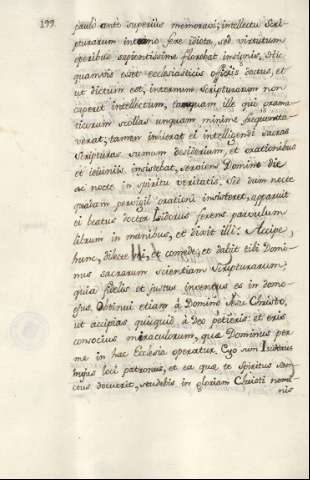 199
paulo ante superius memoravi; intellectu Scri-
pturarum in fere idiota, sed virtutum
operibus sapientissime florebat insignis, Hic
quamvis esset ecclesiasticis officiis doctus, et
ut dictum est, internum Scripturarum non
caperet intellectum, tamquam ille qui gramma-
ticorum scollas unquam minime frequenta-
verat; tamen inhierat ei intelligendi sacras
Scripturas sumum desiderium, et orationibus
et ieiuniis insistebat, serviens Domino die
ac nocte in spiritu veritatis. Sed dum nocte
quadam pervigil orationi insisteret, apparuit
ei beatus doctor Isidorus ferens parvulum
librum in manibus, et dixit illi: Accipe,
hunc, dilecte mi, et comede, et dabit tibi Domi-
nus sacrarum scientiam Scripturarum,
quia fidelis et justus inventus es in domo
ejus. Obtinui etiam à Domino Jhesu Christo,
ut accipias quidquid à Deo petieris: et eris
consocius miraculorum, quæ Dominus per
me in hac Ecclesia operatur. Ego sum Isidorus
hujus loci patronus, et ea quæ te Spiritus san-
ctus docuerit, studebis in gloriam Christi nomi-
nis